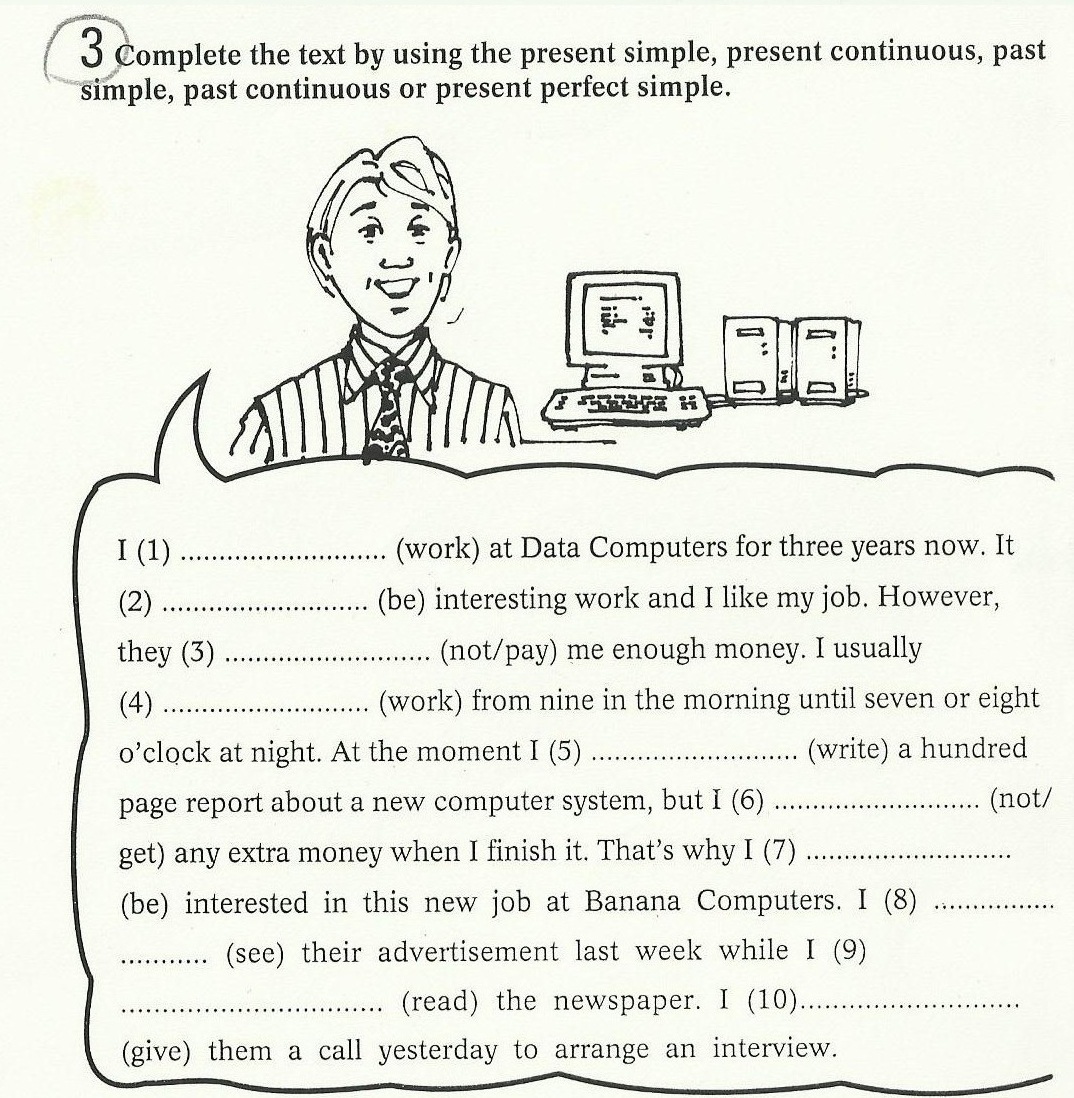 3 Complete the text by using the present simple, present continuous, past
simple, past continuous or present perfect simple.
I (1) ........................... (work) at Data Computers for three years now. It
(2) ........................... (be) interesting work and I like my job. However,
they (3) ........................... (not/pay) me enough money. I usually
(4) ........................... (work) from nine in the morning until seven or eight
o'clock at night. At the moment I (5) ........................... (write) a hundred
page report about a new computer system, but I (6) ........................... (not/
get) any extra money when I finish it. That's why I (7) ...........................
(be) interested in this new job at Banana Computers. I (8) ................
........... (see) their advertisement last week while I (9)
.................................. (read) the newspaper. I (10)............................
(give) them a call yesterday to arrange an interview.